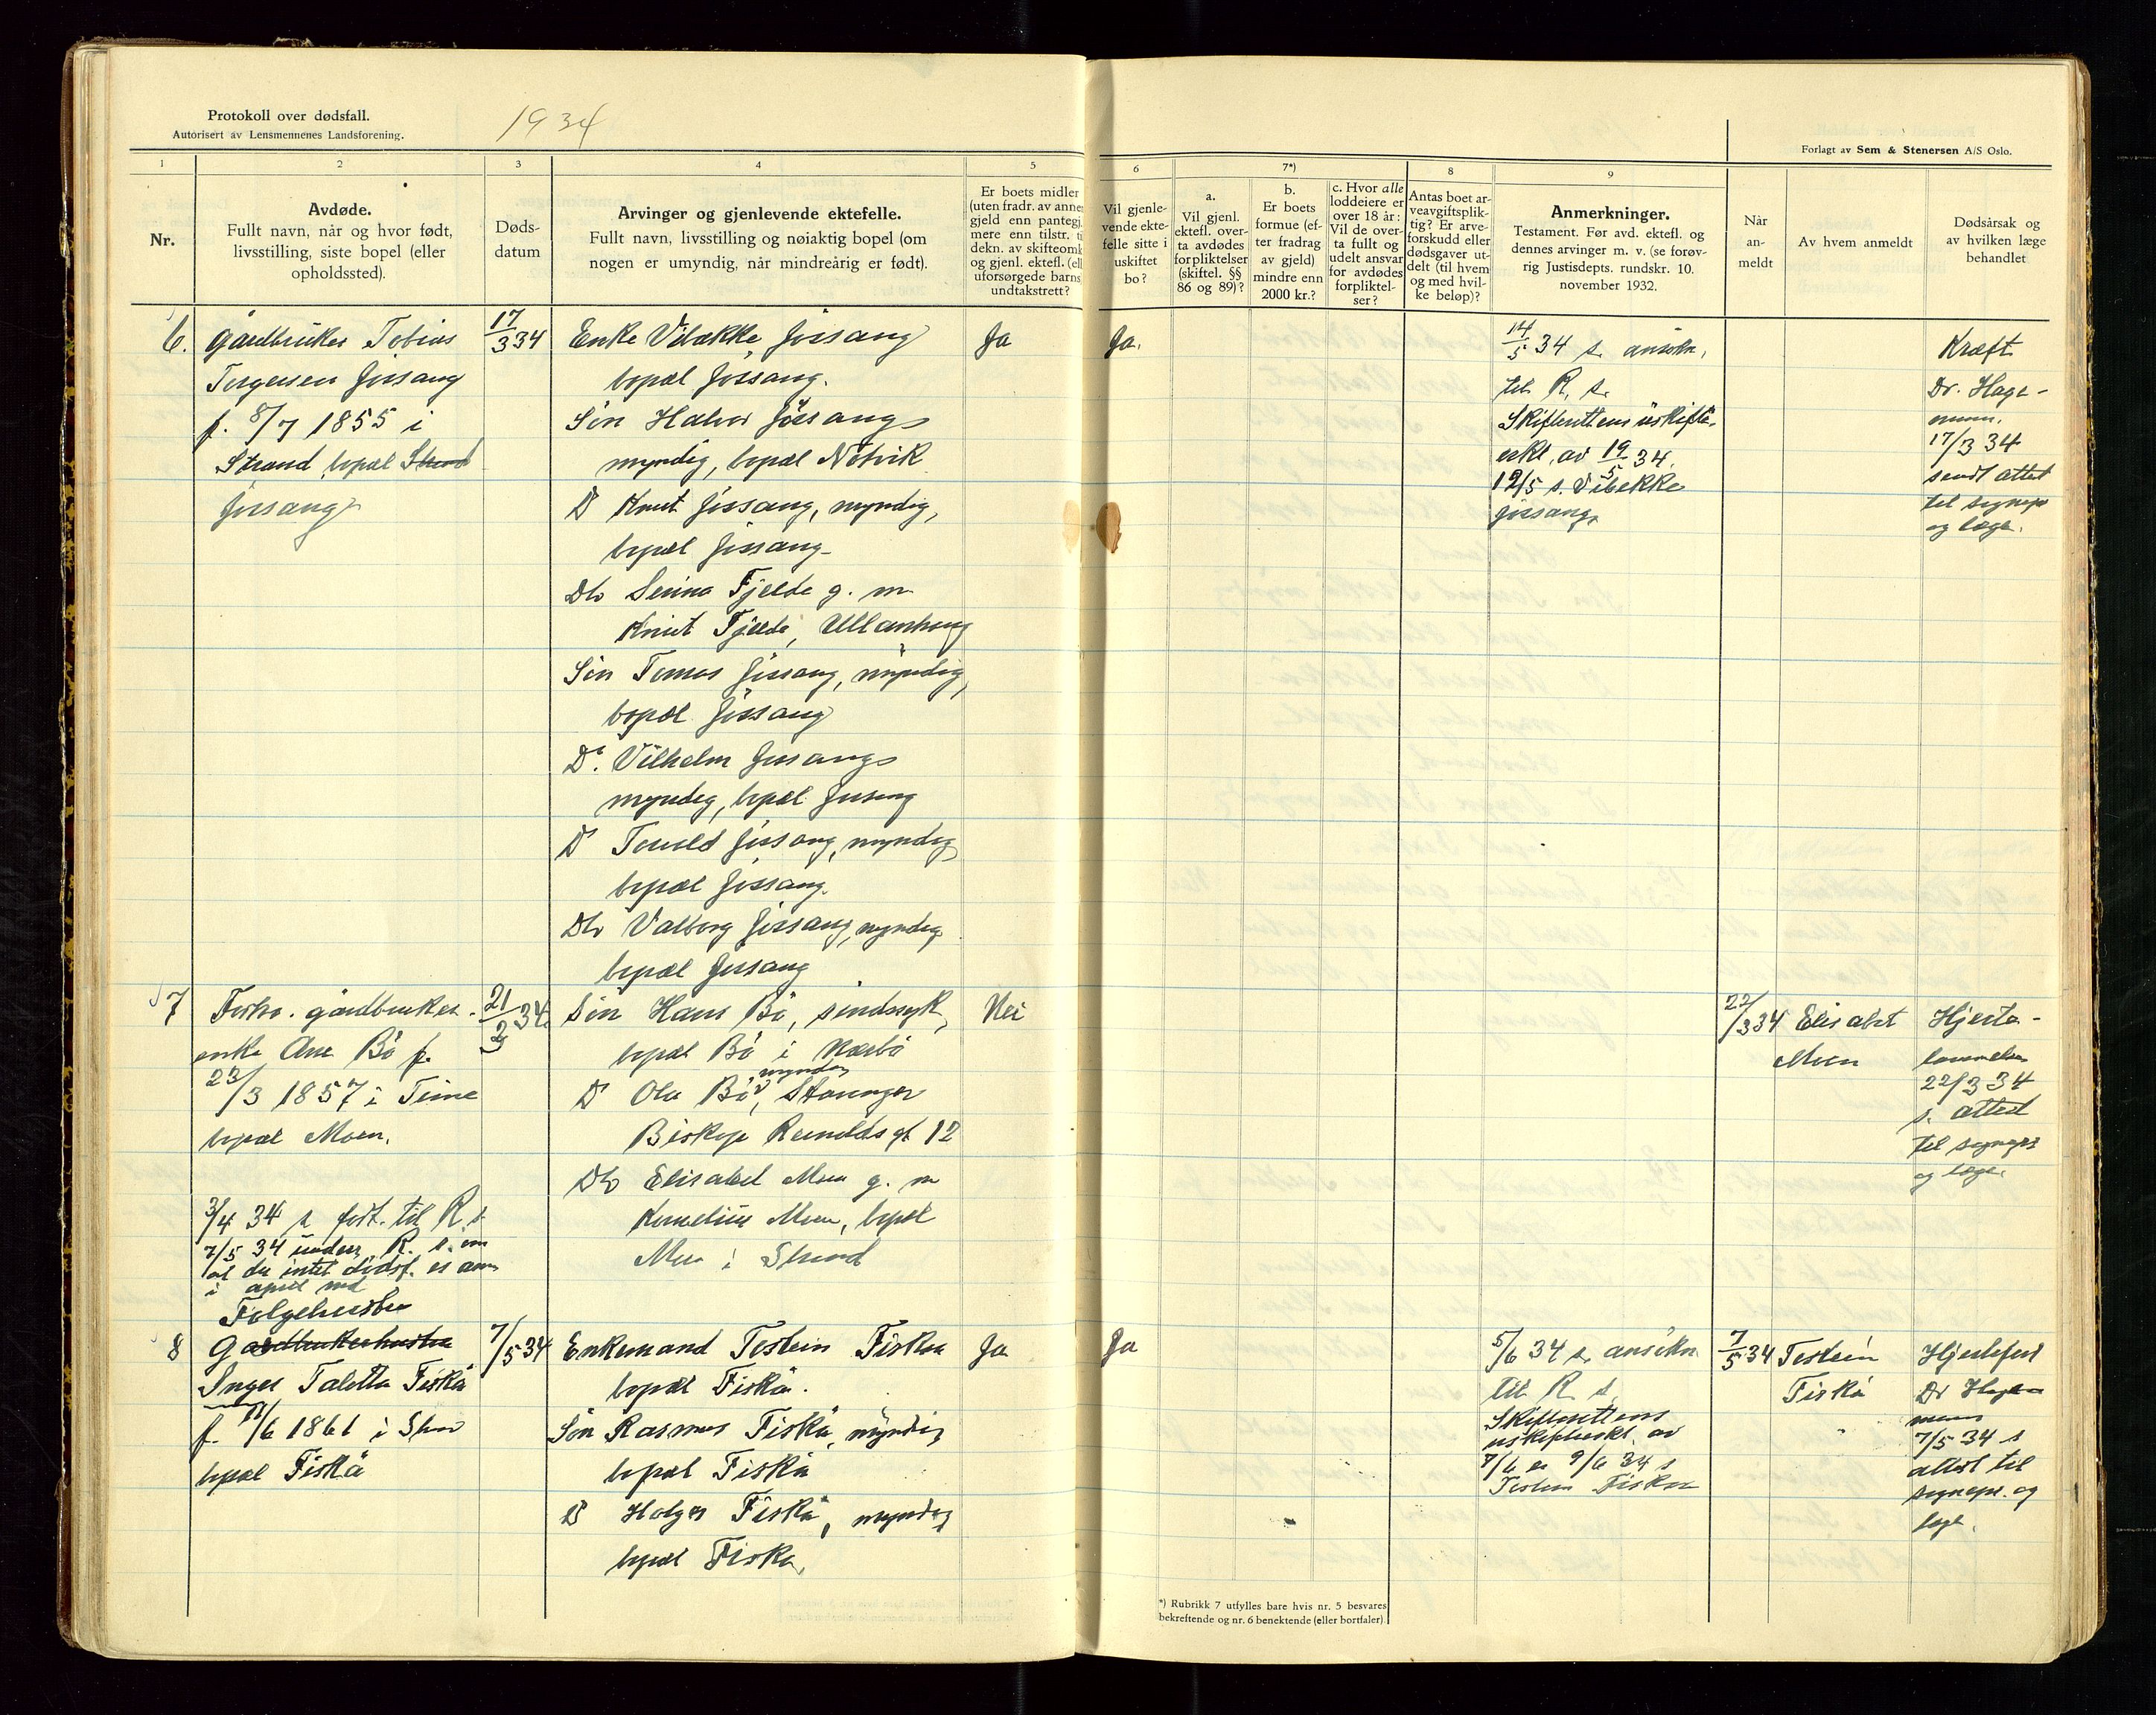 Protokoll over dødsfall.
Autorisert av Lensmennenes Landsforening.
1934
Forlagt av Sem & Stenersen A/S Oslo.
1
2
3
4
5
6
7*)
8
9
Nr.
Avdøde.
Fullt navn, når og hvor født,
livsstilling, siste bopel (eller
opholdssted).
Døds-
datum
Arvinger og gjenlevende ektefelle.
Fullt navn, livsstilling og nøiaktig bopel (om
nogen er umyndig, når mindreårig er født).
Er boets midler
(uten fradr. av annen
gjeld enn pantegj.
mere enn tilstr. ti
dekn. av skifteomk
og gjenl. ektefl. (ell
uforsørgede barns
undtakstrett?
Vil gjenle-
vende ekte-
felle sitte i
uskiftet
bo?
a.
Vil gjenl.
ektefl. over-
ta avdødes
forpliktelser
(skiftel. §§
86 og 89)?
b.
Er boets
formue (ef-
ter fradrag
av gjeld)
mindre enn
2000 kr.?
c. Hvor alle
loddeiere er
over 18 år:
Vil de over-
ta fullt og
udelt ansvar
for avdødes
forpliktel-
ser?
Antas boet ar-
veavgiftsplik-
tig? Er arve-
forskudd eller
dødsgaver ut-
delt (til hvem
og med hvil-
ke beløp)?
Anmerkninger.
Testament. Før avd. ektefl. og
dennes arvinger m. v. (se forøv-
rig Justisdepts. rundskr. 10.
november 1932.
Når
an-
meldt
Av hvem anmeldt
Dødsårsak og
av hvilken læge
behandlet
6.
Gårdbruker Tobias
Torgersen Jøssang
f. 8/7 1855 i
Strand, bopæl Strand
Jøssang
17/3 34
Enke Vibekke Jøssang
bopæl Jøssang.
Søn Halvor Jøssang
myndig, bopæl Notvik
D Knut Jøssang, myndig,
bopæl Jøssang
Dtr Serina Fjelde g. m
Knut Fjelde, Ullanhaug
Søn Tomas Jøssang, myndig,
bopæl Jøssang
D. Vilhelm Jøssang
myndig, bopæl Jøssang
D Torvald Jøssang, myndig
bopæl Jøssang.
Dtr Valborg Jøssang, myndig
bopæl Jøssang
Ja
Ja.
14/5 34 s. ansøkn.
til R. s.
Skifterettens uskifte-
erkl. av 19/5 34.
19/5 s. Vibekke
Jøssang.
Kræft
Dr. Hage-
mann.
17/3 34
sendt attest
til sognepr
og læge.
7
Forhv. gårdbruker-
enke Ane Bø f.
23/3 1857 i Time
bopæl Moen.
3/4 34 s fort. til R. s
7/5 34 underr. R. s. om
at der intet dødsf. er anm
i april md
21/3 34
Søn Hans Bø, sindssyk,
bopæl Bø i Nærbø
D Ola Bø, myndig, Stavanger
Biskop Reinalds gt 12
Dtr Elisabet Moen g. m
Kornelius Moen, bopæl
Moen i Strand
Nei
22/3 34
Elisabet
Moen
Hjerte-
lammelse
22/3 34
s. attest
til sognepr
og læge.
8
Følgehustru
Gardbrukerhustru
Inger Taletta Fiskå
f. 11/6 1861 i Strand
bopæl Fiskå
7/5 34
Enkemand Torstein Fiskå
bopæl Fiskå.
Søn Rasmus Fiskå, myndig
bopæl Fiskå
D Holger Fiskå, myndig
bopæl Fiskå,
Ja
Ja
5/6 34 s. ansøkn
til R. s.
Skifterettens
uskifteerkl. av
7/6 er 9/6 34 s
Torstein Fiskå
7/5 34
Torstein
Fiskå
Hjertefeil
Dr Hage
mann
7/5 34 s
attest til
sognepr. og
læge.
*) Rubrikk 7 utfylles bare hvis nr. 5 besvares
bekreftende og nr. 6 benektende (eller bortfaler).